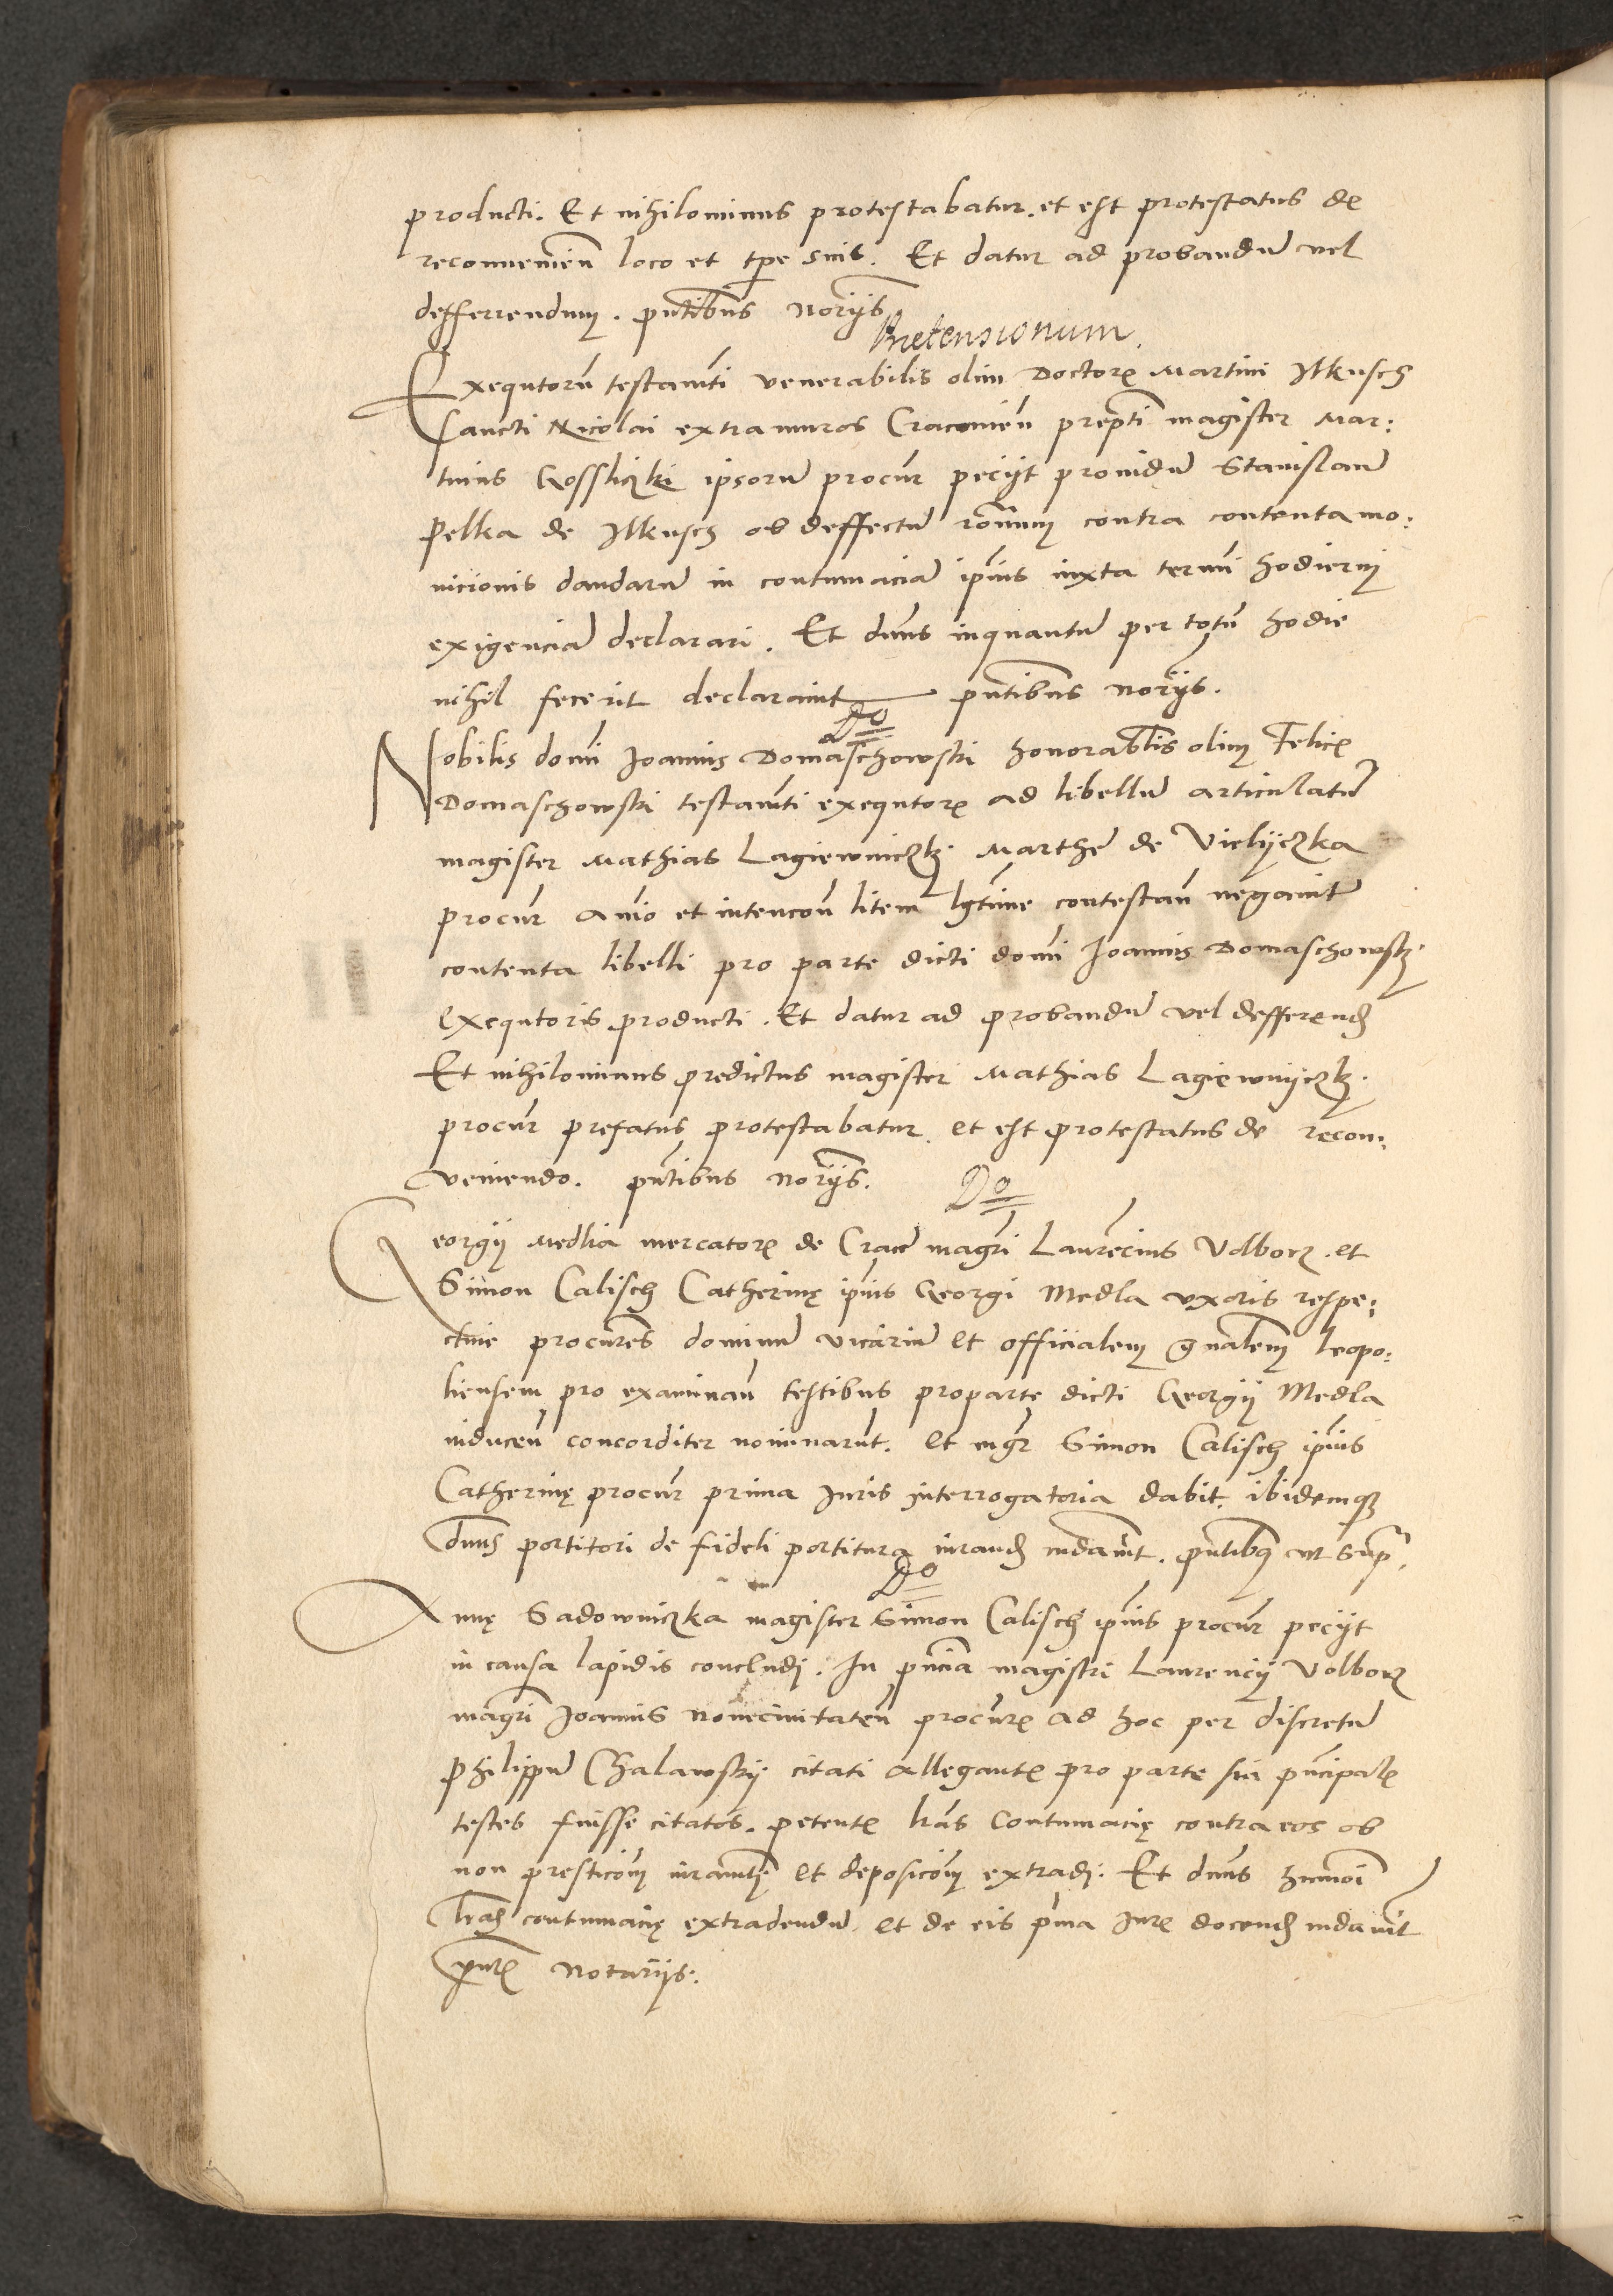 producti. Et nihilominus protestabatur. et est protestatus de
reconvenien̄ loco et tp̄e suis. Et datur ad probandū vel
defferrendum. pn̄tibus nor̄ijs
Pretensionum.
Exequtorū testam̄ti venerabilis olim Doctor̄ Martini Ilkusch
Sancti Nicolai extra muros Cracovien̄ prep̄ti magister Mar:
tinus Gossliczki ipsorū procur̄ pecijt providū Stanislaū
Pelka de Ilkusch ob deffectū ron̄um contra contenta mo:
nicionis dandarū in contumaciā ip̄ius iuxta term̄i hodierni
exigenciā declarari. Et dn̄us inquantū per totū hodie
nihil fecerit declaravit pn̄tibus nor̄ijs.
Do
Nobilis domi Joannis Domaschowski honorabilis olim Felicis
Domaschowski testam̄ti exequtor̄ ad libellū articulatū
magister Mathias Lagiewniczkj Marthe de Vielyczka
procur̄ animo et intencon̄ litem lḡtime contestan̄ negavit
contenta libelli pro parte dicti domi Joannis Domaschowskj
exequtoris producti. Et datur ad probandū vel defferend̄
Et nihilominus predictus magister Mathias Lagiewnyczkj
procur̄ prefatus protestabatur. et est protestatus de recon:
veniendo. pn̄tibus nor̄ijs.
Do
Georgij Medlia mercator̄ de Crac̄ magr̄i Laurēcius Volborz et
Simon Calisch Catherinę ip̄ius Georgi Medla uxoris respe:
ctive procur̄es dominū vicariū et officialem gn̄alem leopo:
liensem pro examinan̄ testibus pro parte dicti Georgij Medla
inducen̄ concorditer nominarūt. et mgr̄ Simon Calisch ip̄ius
Catherinę procur̄ prima Juris interrogatoria dabit. ibidemq3
dn̄us portitori de fideli portitura iurand̄ mdavit. pn̄tibꝰ ut supͣ.
Do
Annę Sadowniczka magister Simon Calisch ip̄ius procur̄ pecijt
in causa lapidis concludj. In pn̄cia magistri Laurencij Volborz
magr̄i Joannis Novecivitaten̄ procur̄ ad hoc per discretū
Philippū Chalawskij citati allegante pro parte sua principal̄
testes fuisse citatos. petente lr̄as Contumacię contra eos ob
non presticōm iuramti et deposicōm extradj. Et dn̄us hmōi
lr̄as contumacię extradendū. et de eis prima Jur̄ docend̄ mdavit
pn̄t notarijs.